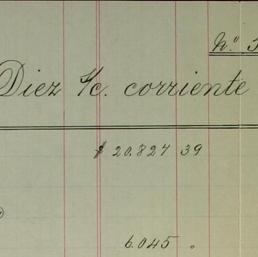 Nº
Diez c/c. corriente
$ 20.827 39
6.045 "